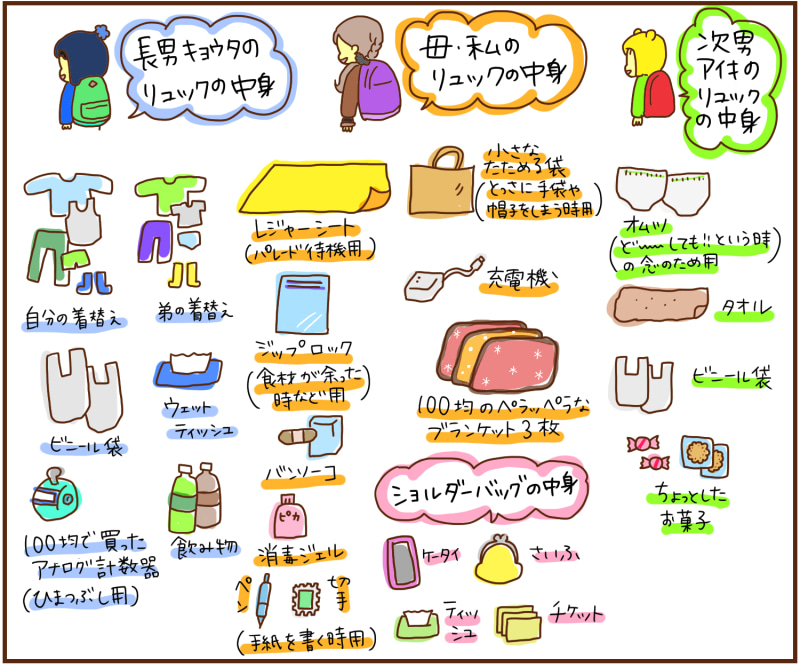 長男キョウタの
リュックの中身
自分の着替え
弟の着替え
ビニール袋
ウェット
ティッシュ
100均で買った
アナログ計数器
(ひまつぶし用)
飲み物
母・私の
リュックの中身
レジャーシート
(パレード待機用)
ジップロック
(食材が余った
時など用)
バンソーコ
ピカ
消毒ジェル
ペン
切手
(手紙を書く時用)
小さな
たためる袋
(とっさに手袋や
帽子をしまう時用)
充電機
100均のペラッペラな
ブランケット3枚
ショルダーバッグの中身
ケータイ
さいふ
ティッ
シュ
チケット
次男
アイキの
リュック
の中身
オムツ
(ど〜〜しても!!という時
の念のため用)
タオル
ビニール袋
ちょっとした
お菓子